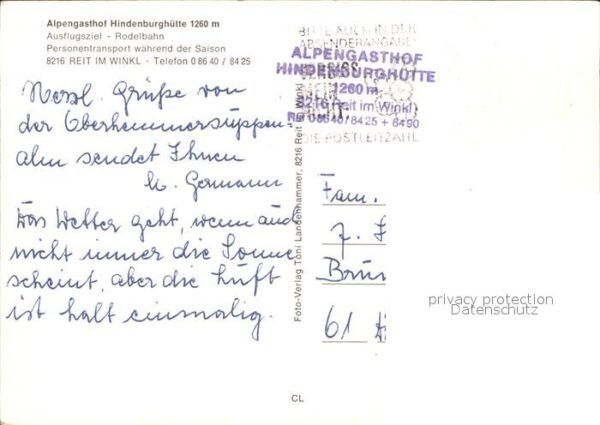 Alpengasthof Hindenburghütte 1260 m
Ausflugsziel - Rodelbahn
Personentransport während der Saison
8216 REIT IM WINKL · Telefon 0 86 40 / 84 25
BITTE AUCH IN DER
ABSENDERANGABE
ALPENGASTHOF
HINDENBURGHÜTTE
1260 m
8216 Reit im Winkl
08640/8425 + 8490
DIE POSTLEITZAHL
Herzl. Grüße von
der Oberhemmersuppen-
alm sendet Ihnen
U. Germann
Das Wetter geht, wenn auch
nicht immer die Sonne
scheint, aber die Luft
ist halt einmalig.
Foto-Verlag Toni Landenhammer, 8216 Reit im Winkl
Fam.
61
privacy protection
Datenschutz
CL